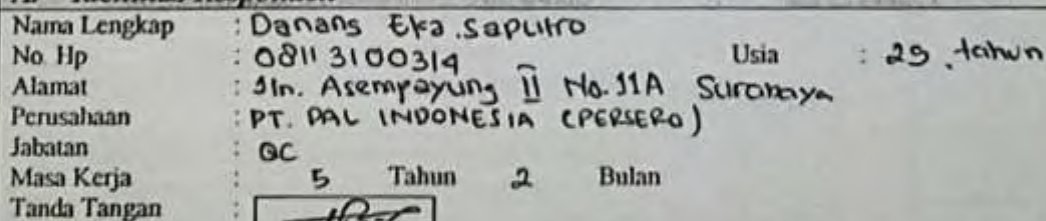 Nama Lengkap : Danans Eka Saputro
No. Hp : 08113100314 Usia : 29 tahun
Alamat : Jln. Asempayung II No. 11A Surabaya
Perusahaan : PT. PAL INDONESIA (PERSERO)
Jabatan : QC
Masa Kerja : 5 Tahun 2 Bulan
Tanda Tangan :